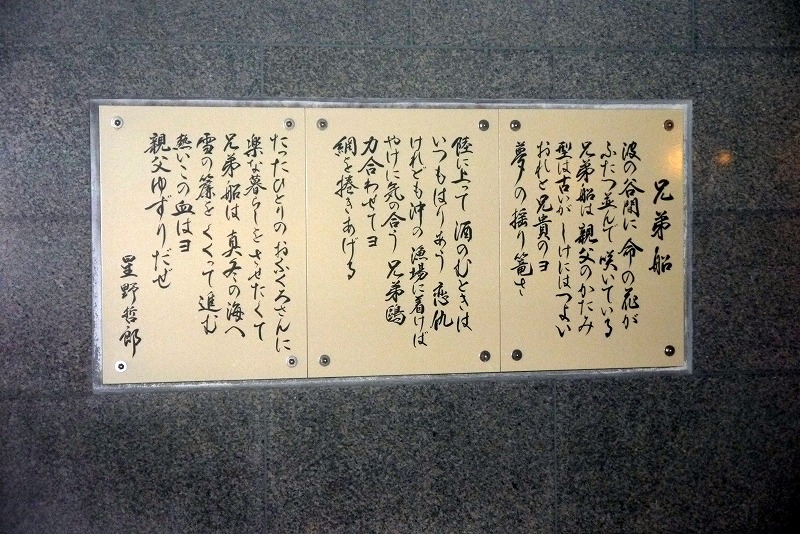 兄弟船
波の谷間に 命の花が
ふたつ並んで 咲いている
兄弟船は 親父のかたみ
型は古いが しけにはつよい
おれと兄貴のヨ
夢の揺り篭さ
陸に上って 酒のむときは
いつもはりあう 恋仇
けれども沖の 漁場に着けば
やけに気の合う 兄弟鴎
力合わせてヨ
網を捲きあげる
たったひとりの おふくろさんに
楽な暮らしを させたくて
兄弟船は 真冬の海へ
雪の簾を くぐって進む
熱いこの血はヨ
親父ゆずりだぜ
星野哲郎